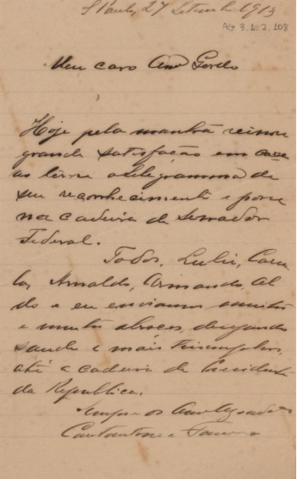 S Paulo, 27 Setembro 1913
AG 3.10.2.108
Meu caro Amº Gordo
Hoje pela manhã reinou
grande satisfação em casa
ao lerre o telegramma de
seu reconhecimento e posse
na cadeira de Senador
Federal.
Todos, Arnaldo, Armando,
e eu enviamos muitos
e muitos abraços, desejando
saude e mais triumphos,
até a cadeira da Presidencia
da Republica.
Sempre os